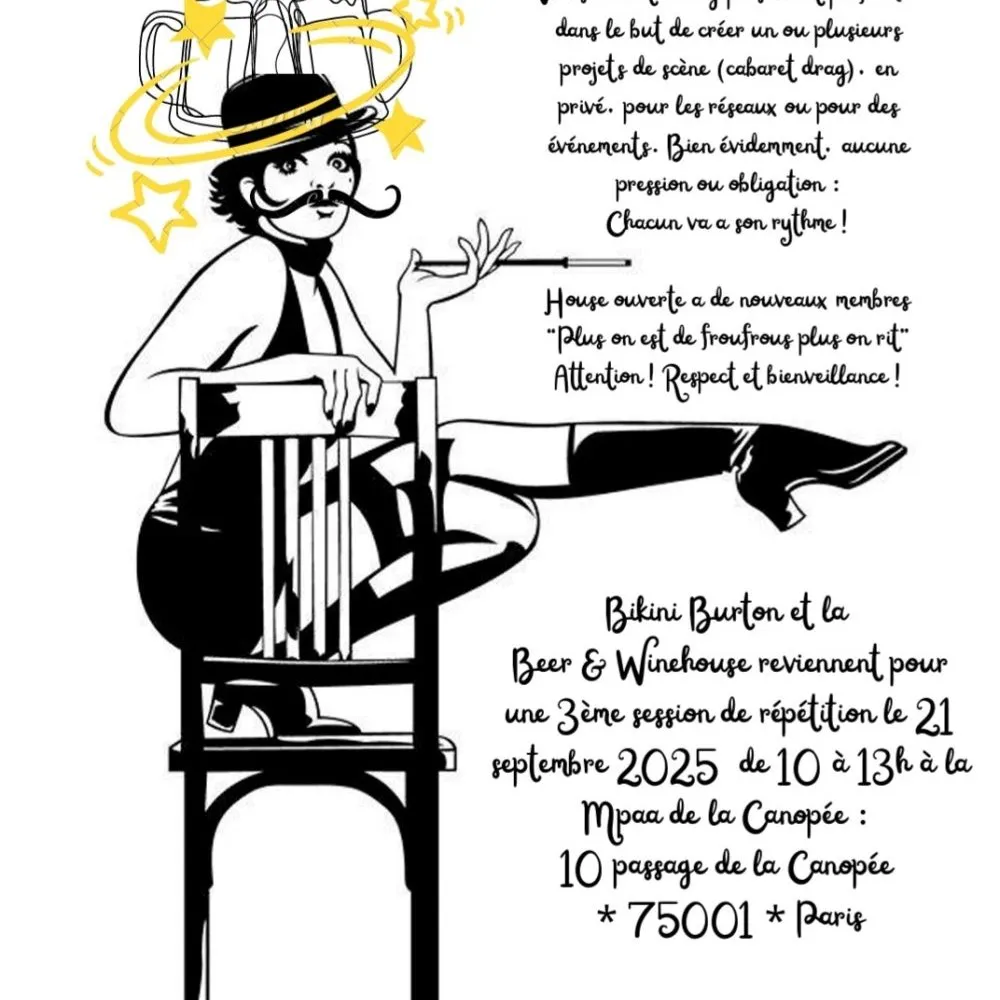 dans le but de créer un ou plusieurs
projets de scène (cabaret drag). en
privé. pour les réseaux ou pour des
événements. Bien évidemment. aucune
pression ou obligation :
Chacun va a son rythme !
House ouverte a de nouveaux membres
"Plus on est de froufrous plus on rit"
Attention ! Respect et bienveillance !
Bikini Burton et la
Beer & Winehouse reviennent pour
une 3ème session de répétition le 21
septembre 2025 de 10 à 13h à la
Mpaa de la Canopée :
10 passage de la Canopée
* 75001 * Paris